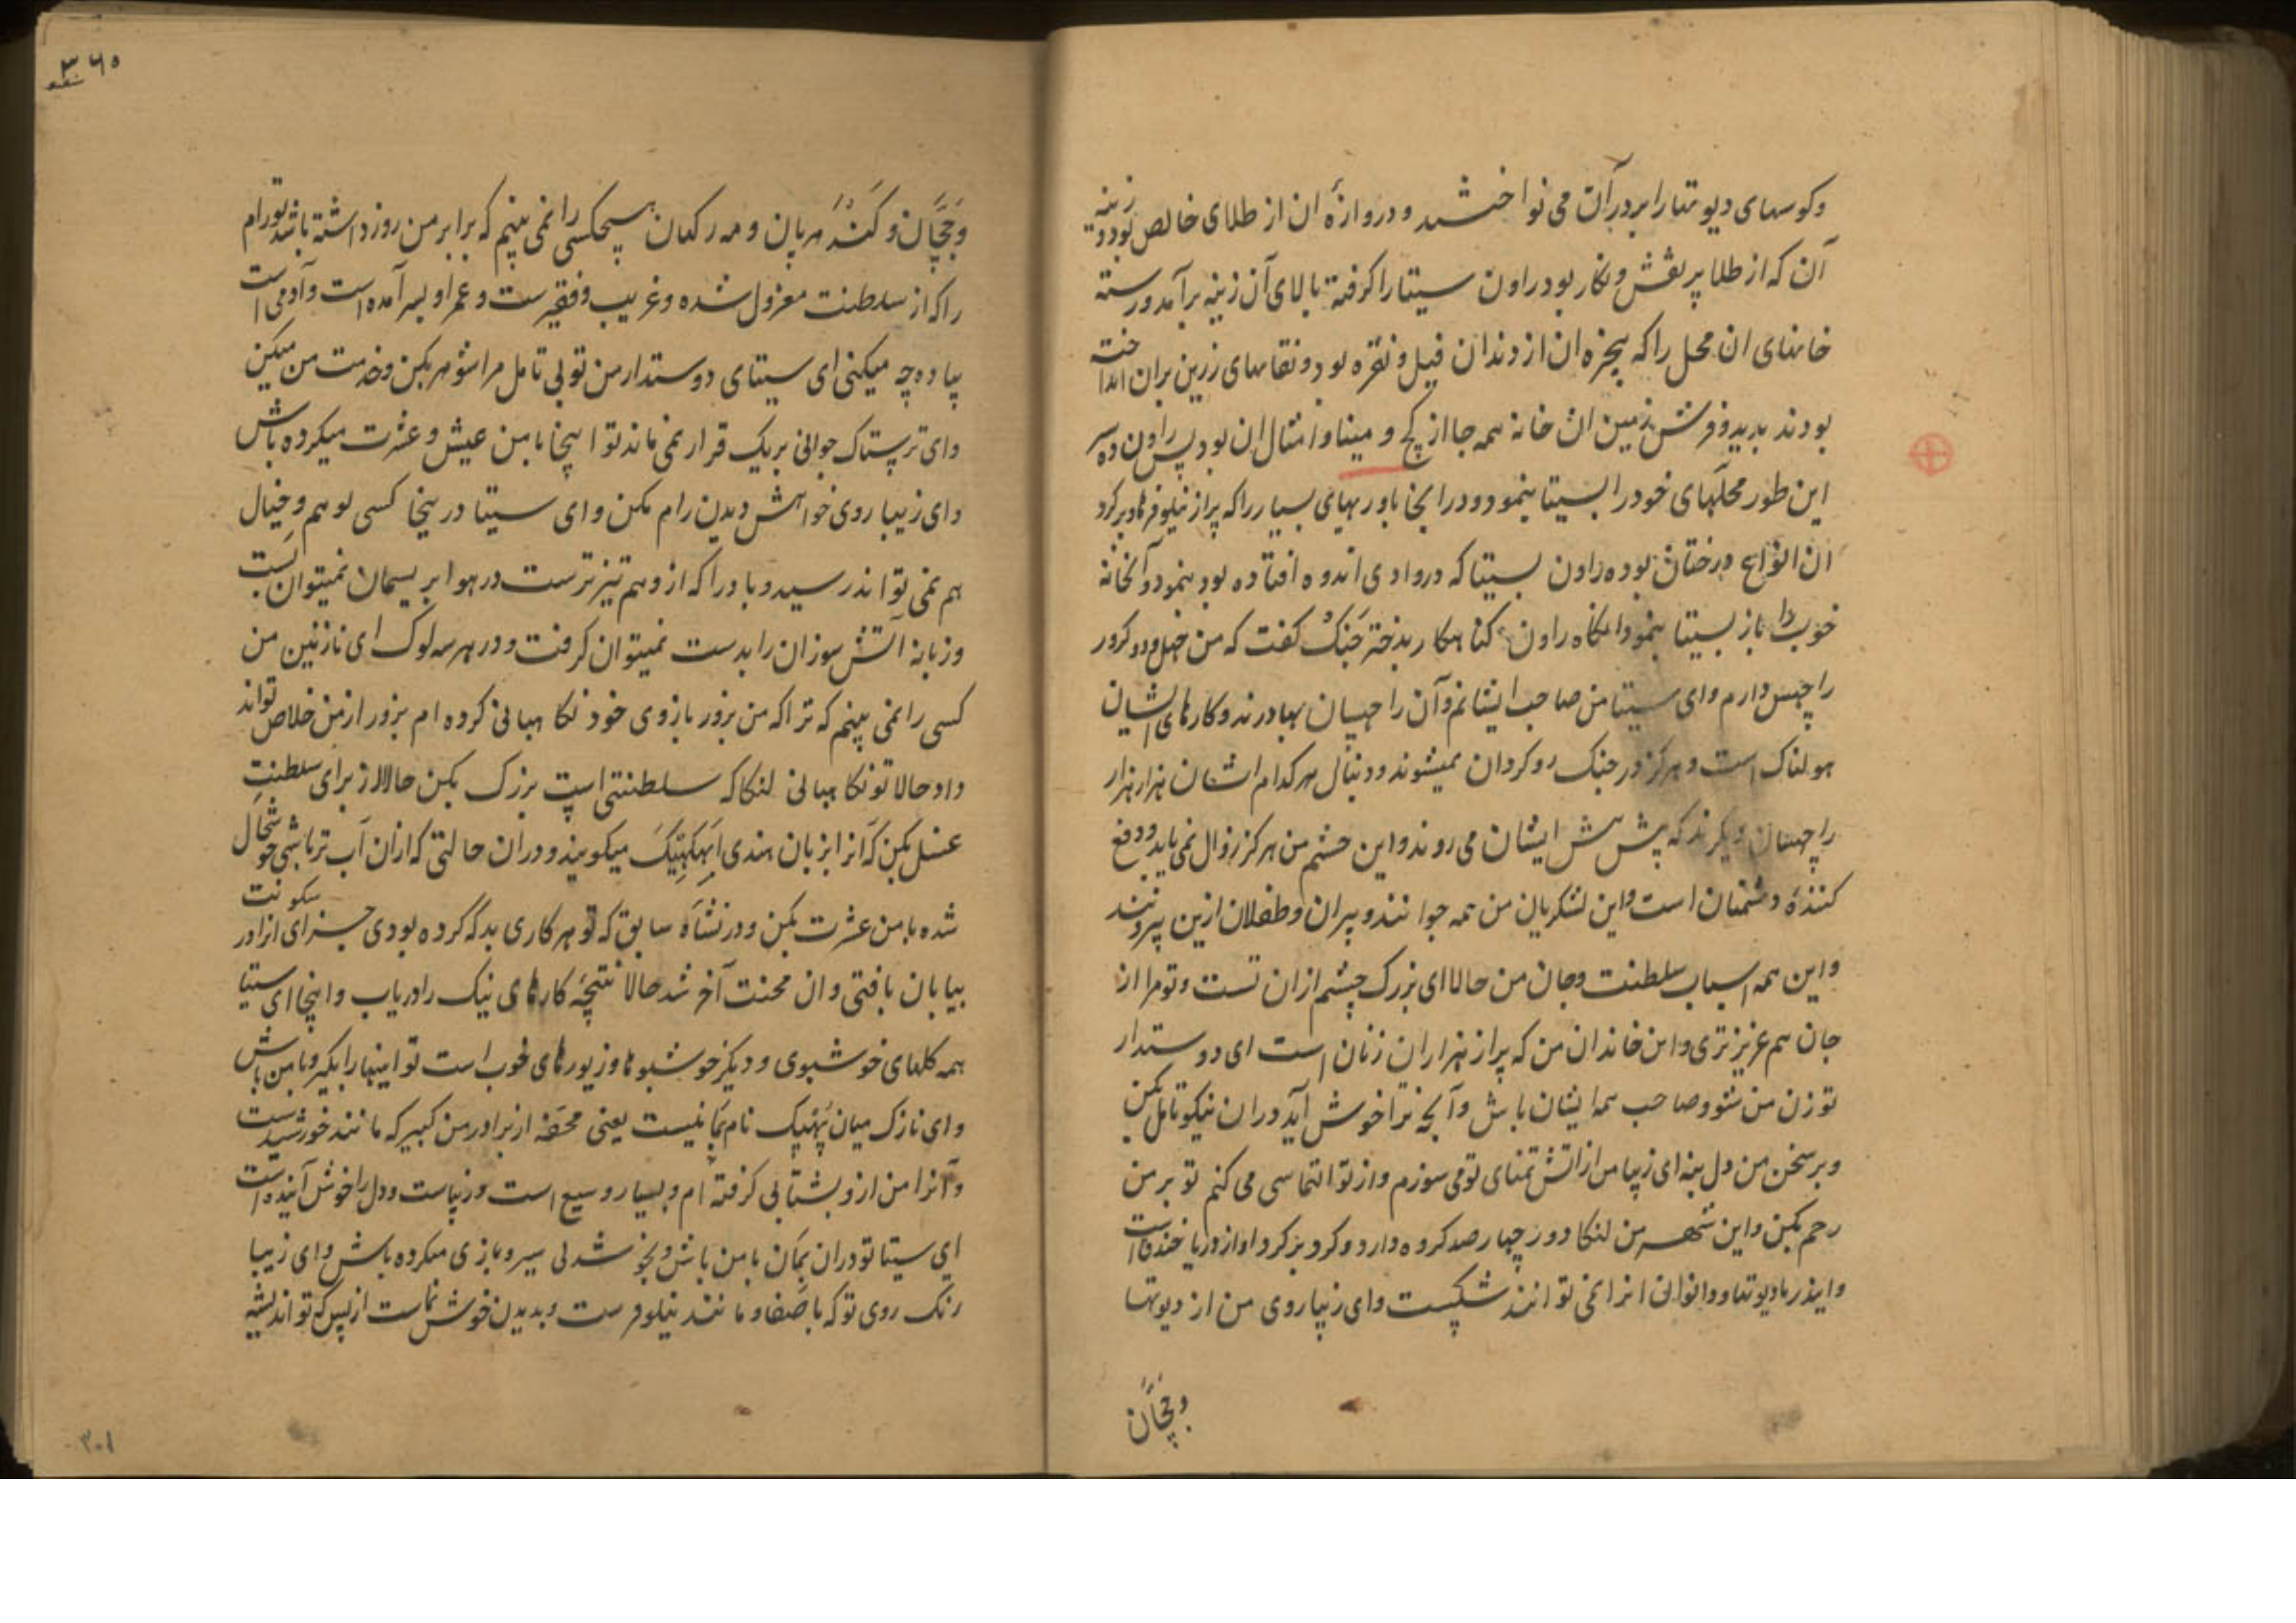 وکوسهای دیوتها را بر در آن می نواختند و دروازهٔ ان از طلای خالص بود و زینه
آن که از طلا پر نقش و نکار بود راون سیتا را کرفته بالای آن زینه برآمد و رسته
خانهای ان محل را که پنجره ان از دندان فیل و نقره بود و نقابهای زرین بران انداخته
بودند بدید و فرش زمین ان خانه همه جا از کچ و مینا و امثال ان بود پس راون ده سر
این طور محلهای خود را بسیتا بنمود و در اینجا باوریهای بسیار را که پر از نیلوفر و بر کرد
ان انواع درختان بوده راون بسیتا که در وادی اندوه افتاده بود بنمود و آنخانه
خوب را باز بسیتا بنمود انکاه راون کناهکار بدختر جنک کفت که من چهل و دو کرور
راچهس دارم و ای سیتا من صاحب ایشانم و آن راچهسان بهادرند و کارهای ایشان
هولناک است و هرکز در جنک روکردان نمیشوند و دنبال هر کدام اشان هزار هزار
راچهسان دیکرند که پیش پیش ایشان می روند و این حشم من هرکز زوال نمی یابد و دفع
کنندهٔ دشمنان است و این لشکریان من همه جوانند و پیران و طفلان ازین بیرونند
و این همه اسباب سلطنت و جان من حالا ای بزرک چشم ازان تست و تو مرا از
جان هم عزیزتری و این خاندان من که پر از هزاران زنان است ای دوستدار
تو زن من شو و صاحب همه ایشان باش و آنچه ترا خوش آید دران نیکو تامل بکن
و بر سخن من دل بنه ای زیبا من از اتش تمنای تو می سوزم و از تو التماسی می کنم تو بر من
رحم بکن و این شهر من لنکا دور چهار صد کروه دارد و کرد بر کرد او از دریا خندق است
و ایندر با دیوتها و دانوان انرا نمی توانند شکست و ای زیبا روی من از دیوتها
وججان
۳۶۵
وججان و کندهربان و مه رکهان هیچکسی را نمی بینم که برابر من زور داشته باشد تو رام
را که از سلطنت معزول شده و غریب و فقیرست و عمر او بسر آمده است و آدمی است
پیاده چه میکنی ای سیتای دوستدار من تو بی تامل مرا شوهر بکن و خدمت من میکن
و ای ترسناک جوانی بریک قرار نمی ماند تو اینجا با من عیش و عشرت میکرده باش
و ای زیبا روی خواهش دیدن رام مکن و ای سیتا در ینجا کسی بوهم و خیال
هم نمی تواند رسید و باد را که از وهم تیزترست در هوا بریسمان نمیتوان بست
و زبانه آتش سوزان را بدست نمیتوان کرفت و در هر سه لوک ای نازنین من
کسی را نمی بینم که ترا که من بزور بازوی خود نکاهبانی کرده ام بزور از من خلاص تواند
داد حالا تو نکاهبانی لنکا که سلطنتی است بزرک بکن حالا از برای سلطنت
غسل بکن که آنرا بزبان هندی ابهکهیک میکویند و دران حالتی که ازان آب تر باشی خوشحال
شده با من عشرت بکن و در نشاه سابق که تو هر کاری بد که کرده بودی جزای انرا در سکونت
بیابان یافتی و ان محنت آخر شد حالا نتیجهٔ کارهای نیک را دریاب و اینجا ای سیتا
همه کلهای خوشبوی و دیکر خوشبوها و زیورهای خوب است تو اینها را بکیر و با من باش
و ای نازک میان پهپک نام بمانیست یعنی محفه از برادر من کبیر که مانند خورشید است
و آنرا من از و بشتابی کرفته ام و بسیار وسیع است و زیباست و دل را خوش آینده است
ای سیتا تو دران بمان با من باش و بخوشدلی سیر و بازی میکرده باش و ای زیبا
رنک روی تو که با صفا و مانند نیلوفرست و بدیدن خوش نماست از بس که تو اندیشه
۳۰۱